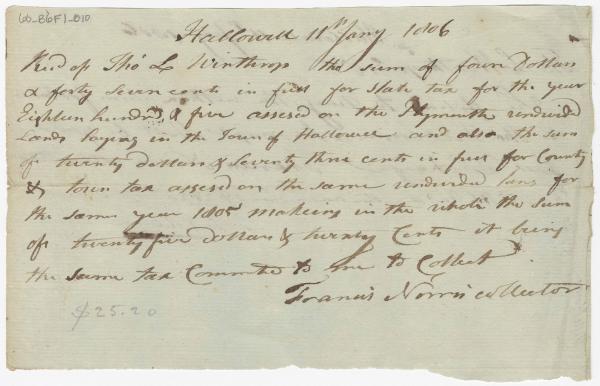 60_B6F1_010
Hallowell 11th Jany 1806
Recd of Tho L Winthrop the sum of four Dollars
& forty Seven cents in full for State tax for the year
Eighteen hundrd & five assesed on the Plymouth undivided
Lands laying in the Town of Hallowell and also the sum
of twenty dollars & Seventy three cents in full for County
& town tax assesed on the same undivided lans for
the same year 1805 making in the whole the Sum
of twenty five dollars & twenty Cents it being
the same tax Committe to me to Collect
Francis Norris collector
$25.20